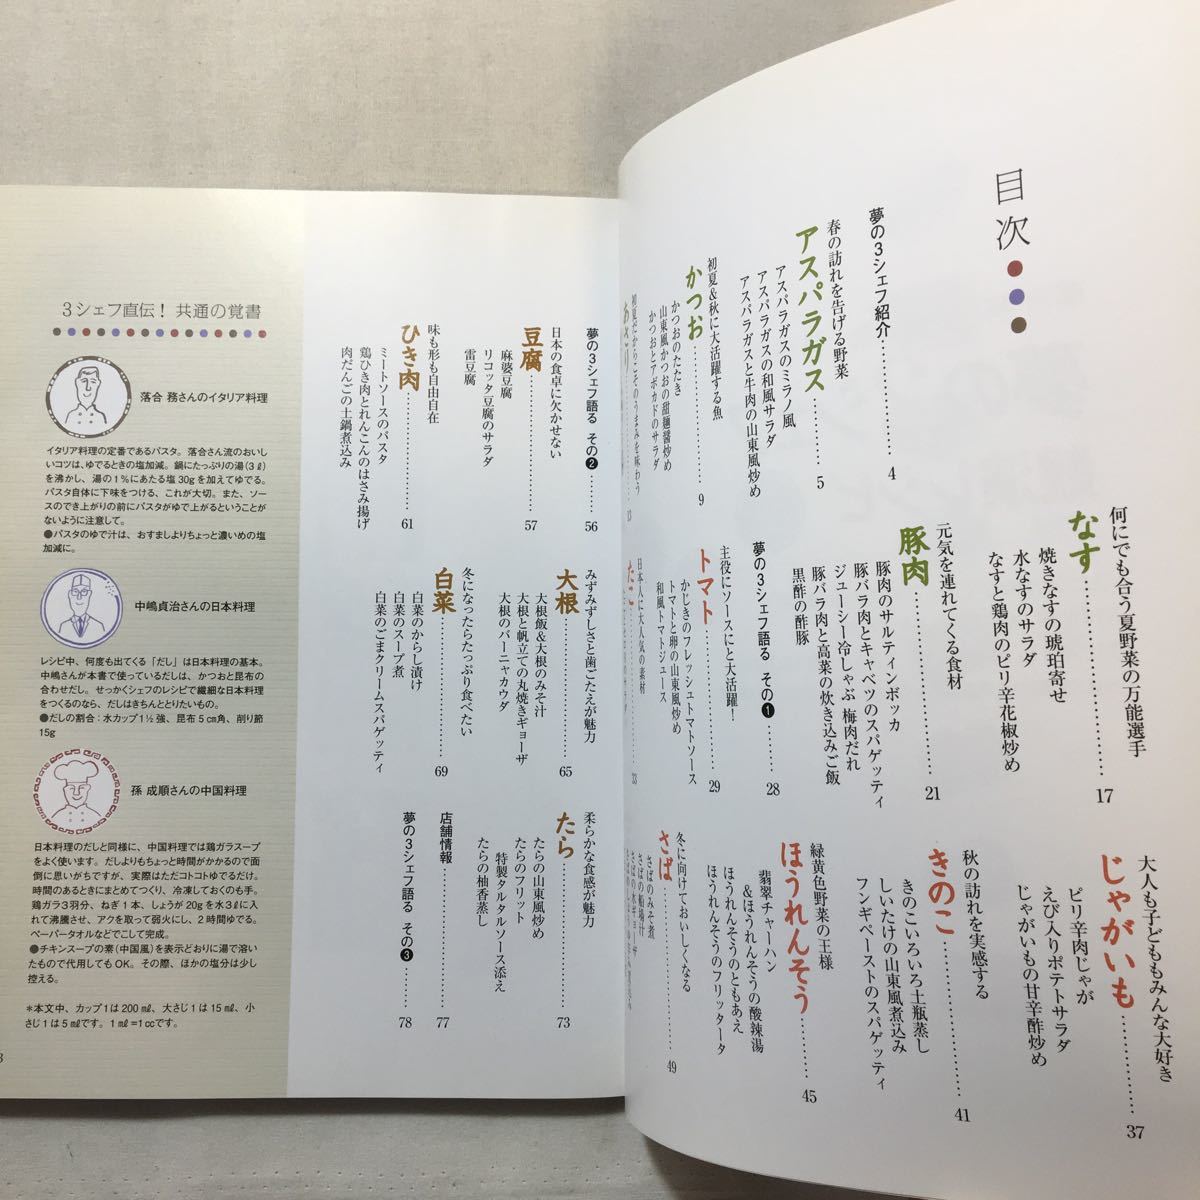 目次
夢の3シェフ紹介………4
春の訪れを告げる野菜
アスパラガス………5
アスパラガスのミラノ風
アスパラガスの和風サラダ
アスパラガスと牛肉の山東風炒め
初夏&秋に大活躍する魚
かつお………9
かつおのたたき
山東風かつおの甜麺醤炒め
かつおとアボカドのサラダ
初夏だからこそのうまみを味わう
あさり………13
何にでも合う夏野菜の万能選手
なす………17
焼きなすの琥珀寄せ
水なすのサラダ
なすと鶏肉のピリ辛花椒炒め
元気を連れてくる食材
豚肉………21
豚肉のサルティンボッカ
豚バラ肉とキャベツのスパゲッティ
ジューシー冷しゃぶ 梅肉だれ
豚バラ肉と高菜の炊き込みご飯
黒酢の酢豚
夢の3シェフ語る その❶………28
主役にソースにと大活躍!
トマト………29
かじきのフレッシュトマトソース
トマトと卵の山東風炒め
和風トマトジュース
日本人に大人気の素材
たこ………33
大人も子どももみんな大好き
じゃがいも………37
ピリ辛肉じゃが
えび入りポテトサラダ
じゃがいもの甘辛酢炒め
秋の訪れを実感する
きのこ………41
きのこいろいろ土瓶蒸し
しいたけの山東風煮込み
フンギペーストのスパゲッティ
緑黄色野菜の王様
ほうれんそう………45
翡翠チャーハン
&ほうれんそうの酸辣湯
ほうれんそうのともあえ
ほうれんそうのフリッタータ
冬に向けておいしくなる
さば………49
さばのみそ煮
さばの船場汁
さばの水ギョーザ
夢の3シェフ語る その❷………56
日本の食卓に欠かせない
豆腐………57
麻婆豆腐
リコッタ豆腐のサラダ
雷豆腐
味も形も自由自在
ひき肉………61
ミートソースのパスタ
鶏ひき肉とれんこんのはさみ揚げ
肉だんごの土鍋煮込み
みずみずしさと歯ごたえが魅力
大根………65
大根飯&大根のみそ汁
大根と帆立ての丸焼きギョーザ
大根のバーニャカウダ
冬になったらたっぷり食べたい
白菜………69
白菜のからし漬け
白菜のスープ煮
白菜のごまクリームスパゲッティ
柔らかな食感が魅力
たら………73
たらの山東風炒め
たらのフリット
特製タルタルソース添え
たらの柚香蒸し
店舗情報………77
夢の3シェフ語る その❸………78
3シェフ直伝! 共通の覚書
落合 務さんのイタリア料理
イタリア料理の定番であるパスタ。落合さん流のおいし
いコツは、ゆでるときの塩加減。鍋にたっぷりの湯(3ℓ)
を沸かし、湯の1%にあたる塩30gを加えてゆでる。
パスタ自体に下味をつける、これが大切。また、ソー
スのでき上がりの前にパスタがゆで上がるということが
ないように注意して。
●パスタのゆで汁は、おすましよりちょっと濃いめの塩
加減に。
中嶋貞治さんの日本料理
レシピ中、何度も出てくる「だし」は日本料理の基本。
中嶋さんが本書で使っているだしは、かつおと昆布の
合わせだし。せっかくシェフのレシピで繊細な日本料理
をつくるのなら、だしはきちんととりたいもの。
●だしの割合:水カップ1½強、昆布5cm角、削り節
15g
孫 成順さんの中国料理
日本料理のだしと同様に、中国料理では鶏ガラスープ
をよく使います。だしよりもちょっと時間がかかるので面
倒に思いがちですが、実際はただコトコトゆでるだけ。
時間のあるときにまとめてつくり、冷凍しておくのも手。
鶏ガラ3羽分、ねぎ1本、しょうが20gを水3ℓに入
れて沸騰させ、アクを取って弱火にし、2時間ゆでる。
ペーパータオルなどでこして完成。
●チキンスープの素(中国風)を表示どおりに湯で溶い
たもので代用してもOK。その際、ほかの塩分は少し
控える。
*本文中、カップ1は200㎖、大さじ1は15㎖、小
さじ1は5㎖です。1㎖=1ccです。
3